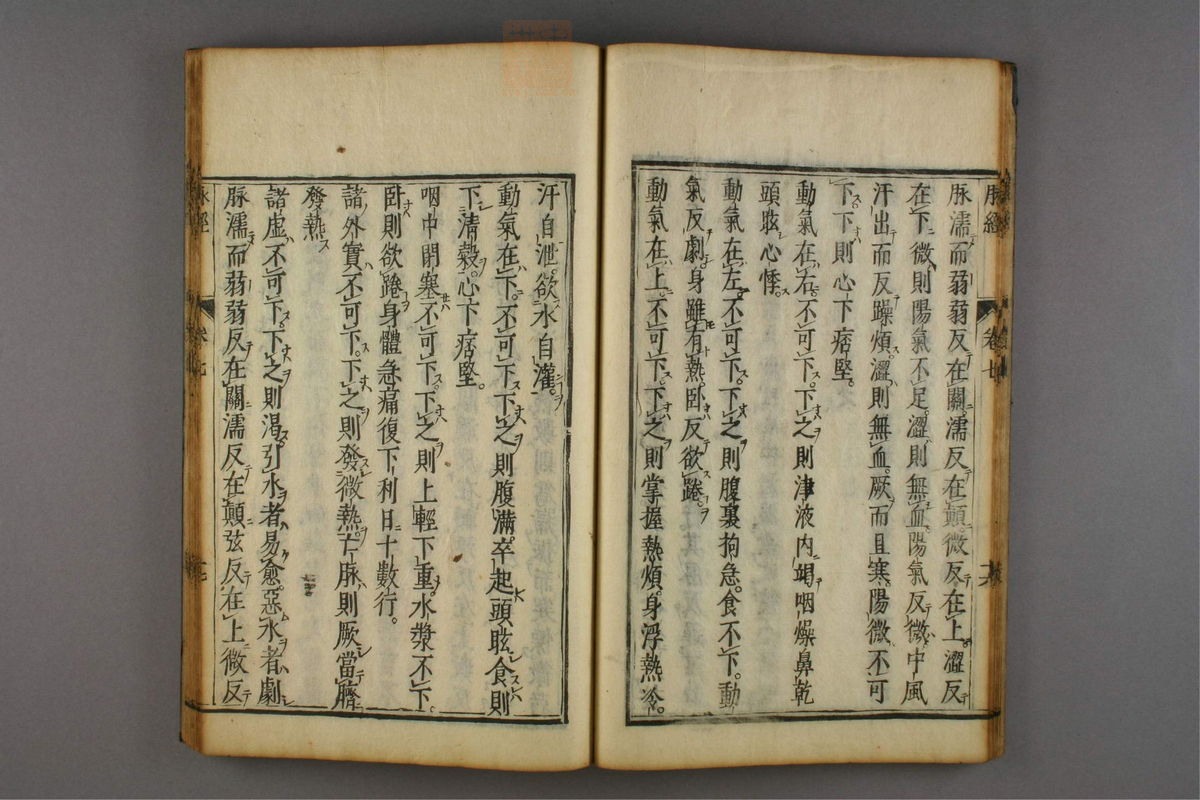 脉濡而弱弱反在關濡反在顛微反在上澀反
在下微則陽氣不足澀則無血陽氣反微中風
汗出而反躁煩澀則無血厥而且寒陽微不可
下下則心下痞堅
動氣在右不可下下之則津液內竭咽燥鼻乾
頭眩心悸
動氣在左不可下下之則腹裏拘急食不下動
氣反劇身雖有熱臥反欲踡
動氣在上不可下下之則掌握熱煩身浮熱冷
汗自泄欲水自灌
動氣在下不可下下之則腹滿卒起頭眩食則
下清穀心下痞堅
咽中閉塞不可下下之則上輕下重水漿不下
臥則欲踡身體急痛復下利日十數行
諸外實不可下下之則發微熱亡脉則厥當臍
發熱
諸虛不可下下之則渴引水者易愈惡水者劇
脉濡而弱弱反在關濡反在顛弦反在上微反
脉經
卷七
脉經
卷七